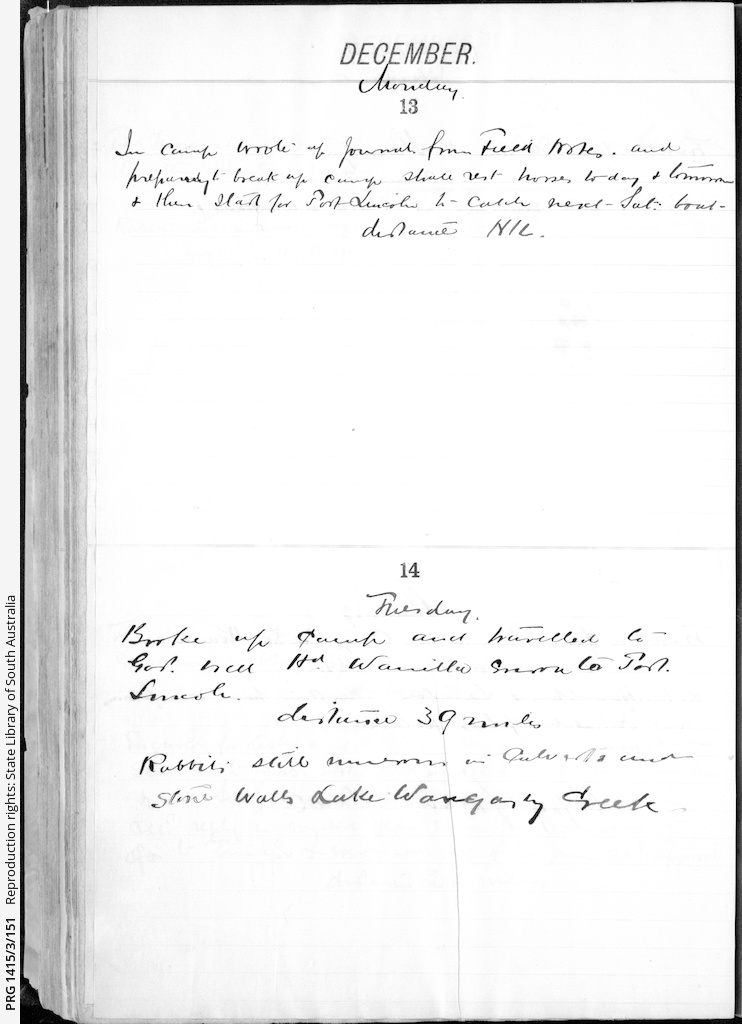 DECEMBER.
Monday.
13
In camp wrote up Journal from Field Notes. and
preparing to break up camp shall rest horses to day & tomorrow
& then start for Port Lincoln to catch next Sat: boat
distance NIL.
14
Tuesday.
Broke up Camp and travelled to
Govt. well Hd. Wanilla en route to Port.
Lincoln.
distance 39 miles
Rabbits still numerous in Culverts and
stone walls Lake Wangary Creek
PRG 1415/3/151 Reproduction rights: State Library of South Australia